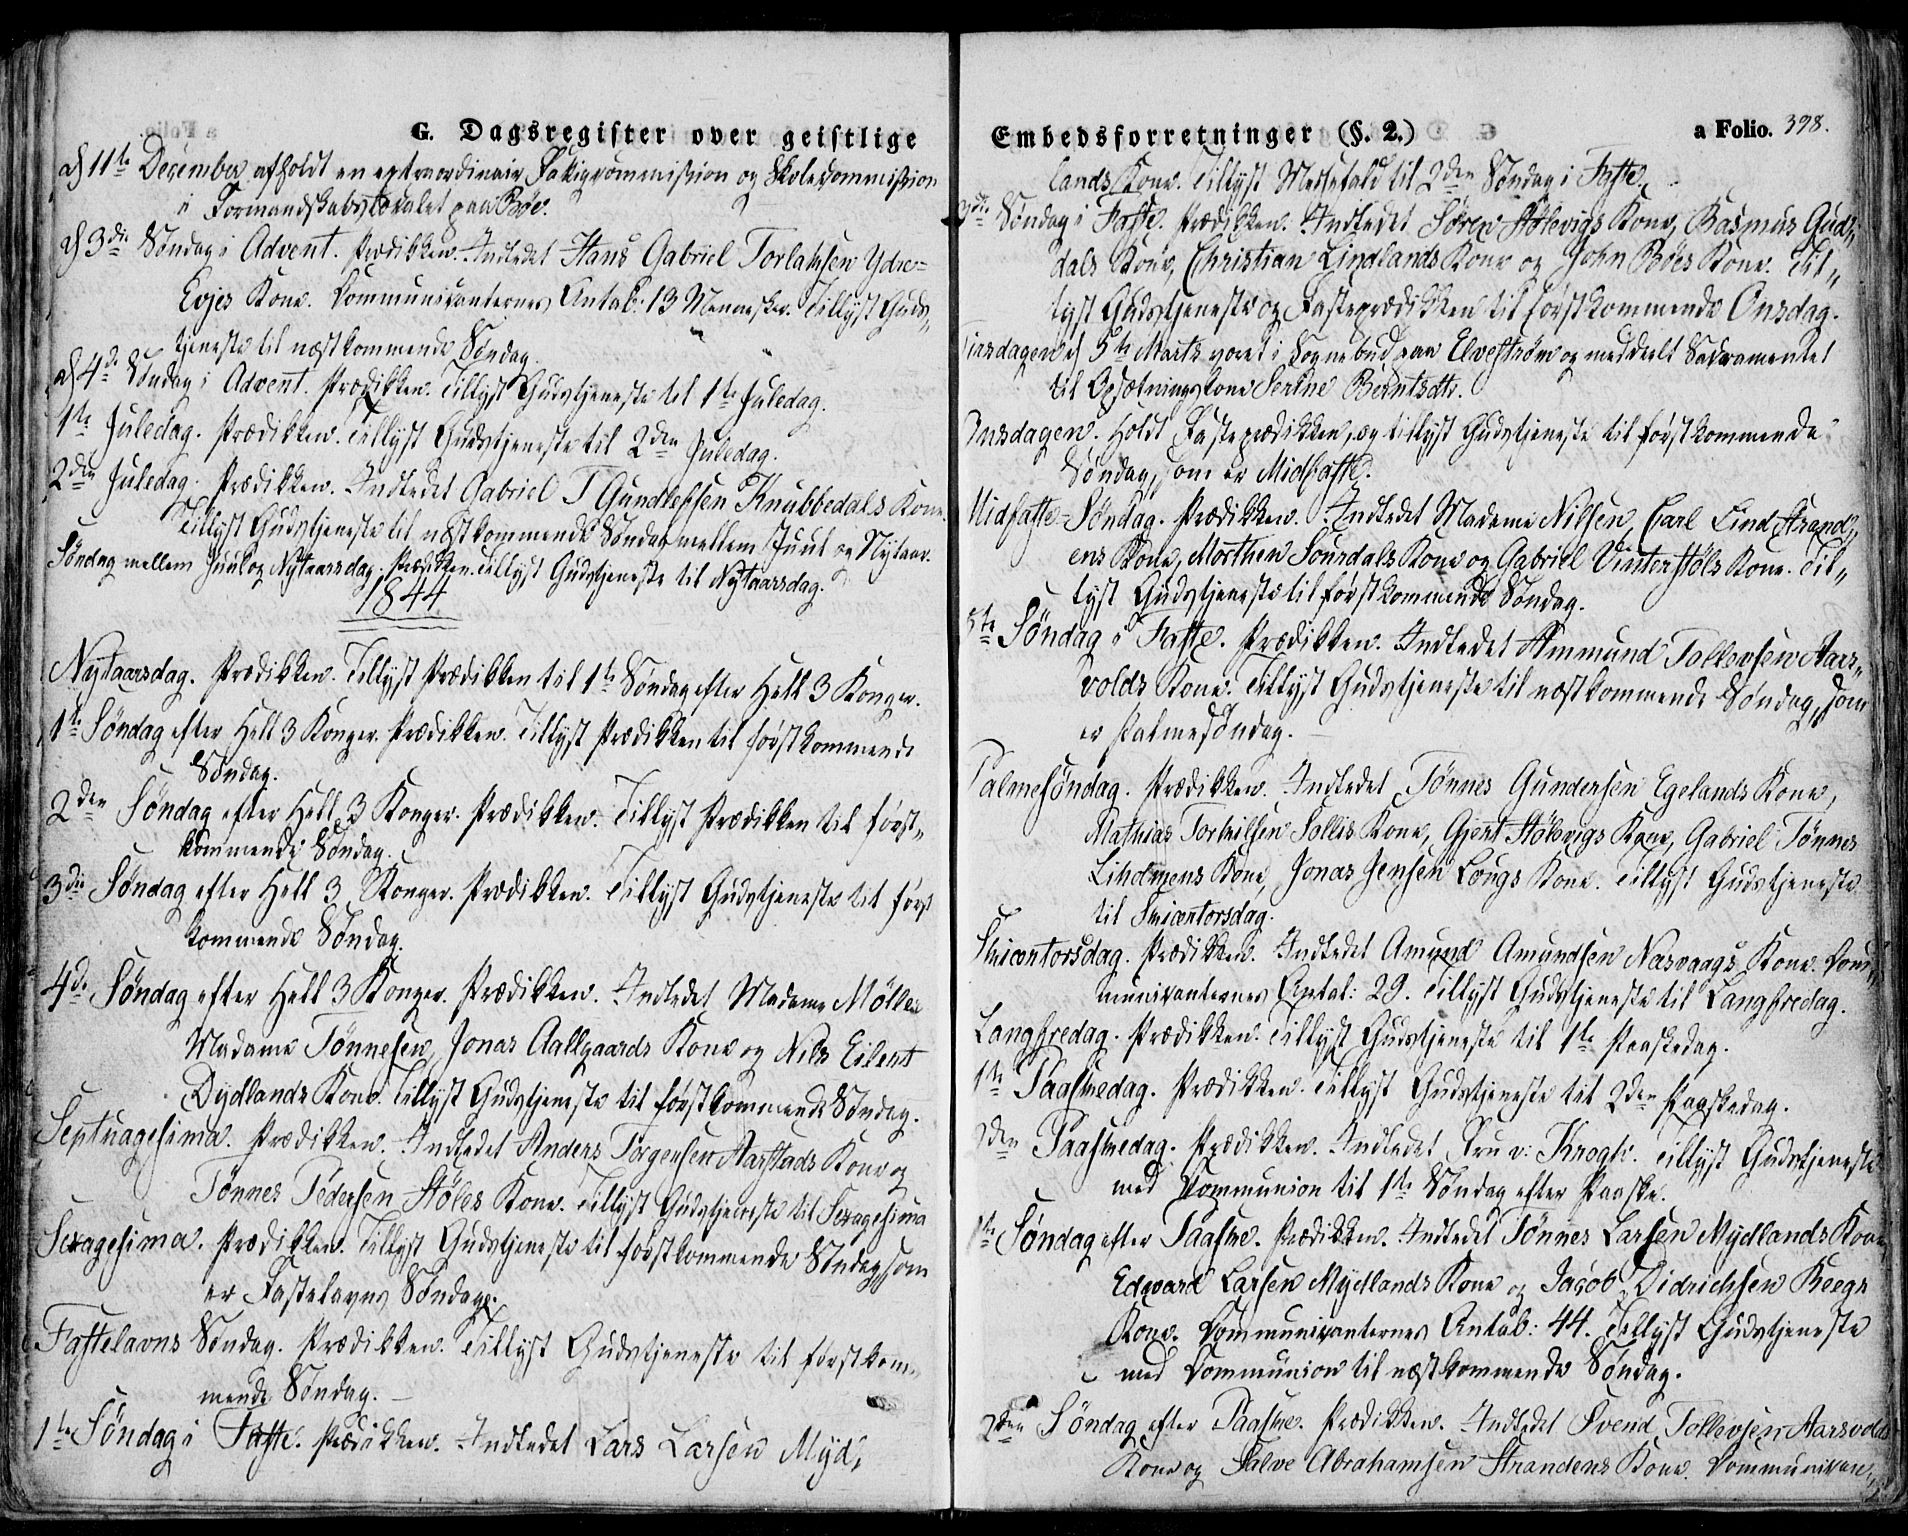 G. Dagsregister over geistlige
d 11te December afholdt en extraordinair Fattigcommission og Skolecommission
i Formandskabslocalet paa Bøe.
d 3die Søndag i Advent. Prædikken. Indledet Hans Gabriel Torlaksen Ydre-
Evjes Kone. Communicanternes Antal: 13 Mennesker. Tillyst Guds,,
tjeneste til næstkommende Søndag.
d 4de Søndag i Advent. Prædikken. Tillyst Gudstjeneste til 1ste Juledag.
1ste Juledag. Prædikken. Tillyst Gudstjeneste til 2den Juledag.
2den Juledag. Prædikken. Indledet Gabriel T Gundersen Knubbedals Kone.
Tillyst Gudstjeneste til næstkommende Søndag mellem Juul og Nytaar.
Søndag mellem Juul og Nytaarsdag. Prædikken. Tillyst Gudstjeneste til Nytaarsdag.
1844
Nytaarsdag. Prædikken. Tillyst Prædikken til 1ste Søndag efter Hell 3 Konger.
1ste Søndag efter Hell 3 Konger. Prædikken. Tillyst Prædikken til førstkommende
Søndag.
2den Søndag efter Hell 3 Konger. Prædikken. Tillyst Prædikken til først,,
kommende Søndag.
3die Søndag efter Hell 3 Konger. Prædikken. Tillyst Gudstjeneste til først
kommende Søndag.
4de Søndag efter Hell 3 Konger. Prædikken. Indledet Madame Møller
Madame Tønnesen, Jonas Aallgaards Kone og Nils Eilert
Dydlands Kone. Tillyst Gudstjeneste til førstkommende Søndag.
Septuagesima. Prædikken. Indledet Anders Torgersen Aarstads Kone og
Tønnes Pedersen Støles Kone. Tillyst Gudstjeneste til Sexagesima
Sexagesima. Prædikken. Tillyst Gudstjeneste til førstkommende Søndag, som
er Fastelavns Søndag.
Fastelavns Søndag. Prædikken. Tillyst Gudstjeneste til førstkom,,
mende Søndag. –
1ste Søndag i Faste. Prædikken. Indledet Lars Larsen Myd,,
Embedsforretninger (§. 2.) a Folio. 398.
lands Kone. Tillyst Messefald til 2den Søndag i Faste.
3die Søndag i Faste. Prædikken. Indledet Søren Stølevigs Kone, Rasmus Gud,,
dals Kone, Christian Lindlands Kone og John Bøes Kone. Til,,
lyst Gudstjeneste og Fasteprædikken til førstkommende Onsdag.
Tirsdagen d 5te Marts været i Sognebud paa Elvestrøm og meddeelt Sacramentet
til Opsætningskone Serine Berntsdtr.
Onsdagen. Holdt Fasteprædikken, og tillyst Gudstjeneste til førstkommende
Søndag, som er Midfaste.
Midfaste-Søndag. Prædikken. Indledet Madame Nilsen, Carl Lind Strand,,
ens Kone, Morthen Souredals Kone og Gabriel Vinterstøls Kone. Til,,
lyst Gudstjeneste til førstkommende Søndag.
5te Søndag i Faste. Prædikken. Indledet Ammund Tollevsen Aars,,
volds Kone. Tillyst Gudstjeneste til næstkommende Søndag, som
er Palmesøndag.
Palmesøndag. Prædikken. Indledet Tønnes Gundersen Egelands Kone,
Mathias Torkilsen Sollis Kone, Gjert Stølevigs Kone, Gabriel Tønnes
Liholmens Kone, Jonas Jensen Lougs Kone. Tillyst Gudstjeneste
til Skicentorsdag.
Skicentorsdag. Prædikken. Indledet Amund Amundsen Næsvaags Kone. Com,,
municanternes Antal: 29. Tillyst Gudstjeneste til Langfredag.
Langfredag. Prædikken. Tillyst Gudstjeneste til 1ste Paaskedag.
1ste Paaskedag. Prædikken. Tillyst Gudstjeneste til 2den Paaskedag.
2den Paaskedag. Prædikken. Indledet Fru v: Krogh. Tillyst Gudstjeneste
med Communion til 1ste Søndag efter Paaske.
1ste Søndag efter Paaske. Prædikken. Indledet Tønnes Larsen Mydlands Kone
Edward Larsen Mydlands Kone og Jacob Didrichsen Keegs
Kone. Communicanternes Antal: 44. Tillyst Gudstjeneste
med Communion til næstkommende Søndag.
2den Søndag efter Paaske. Prædikken. Indledet Svend Tollevsen Aarsvolds
Kone og Salve Abrahamsen Strandens Kone. Communican,,